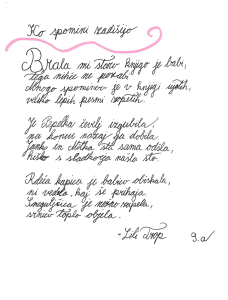 Ko spomini zadišijo
Brala mi staro knjigo je babi,
tega nihče ne pozabi.
Mnogo spominov je v knjigi ujetih,
veliko lepih pesmi zapetih.
Je Pepelka čevelj izgubila,
na koncu nazaj ga dobila.
Janko in Metka sta sama odšla,
hiško s sladkorja našla sta.
Rdeča kapica je babico obiskala,
ni vedela, kaj se prihaja.
Sneguljčica je nežno zapela,
srnico toplo objela.
- Lili Trop 9.a